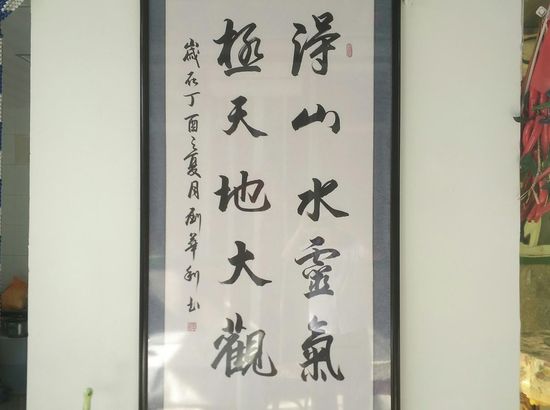 得山水靈氣
極天地大觀
歲在丁酉之夏月劉華利书